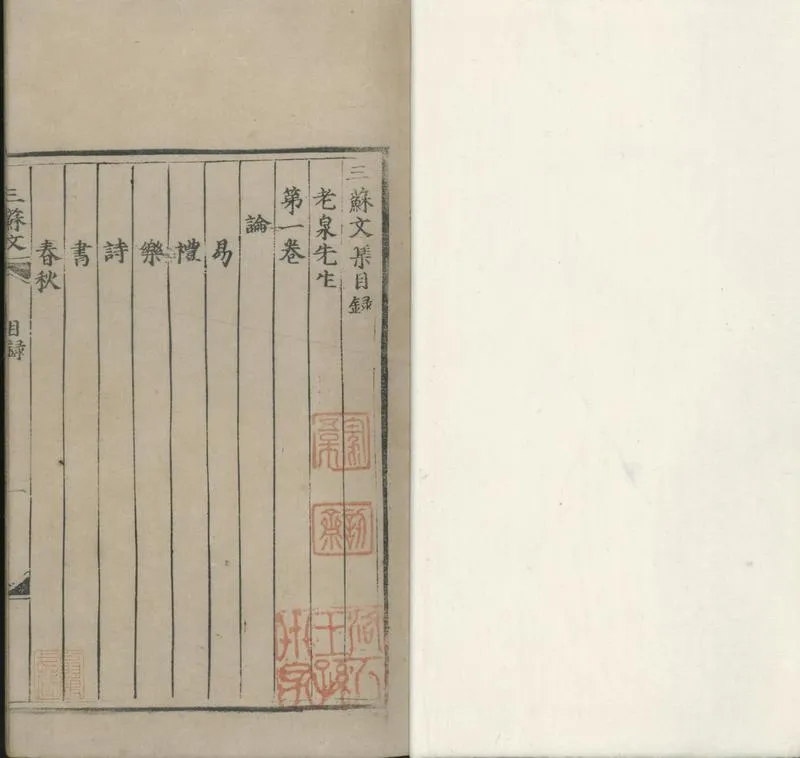 三蘇文集目録
老泉先生
第一卷
論
易
禮
樂
詩
書
春秋
三蘇文
目録